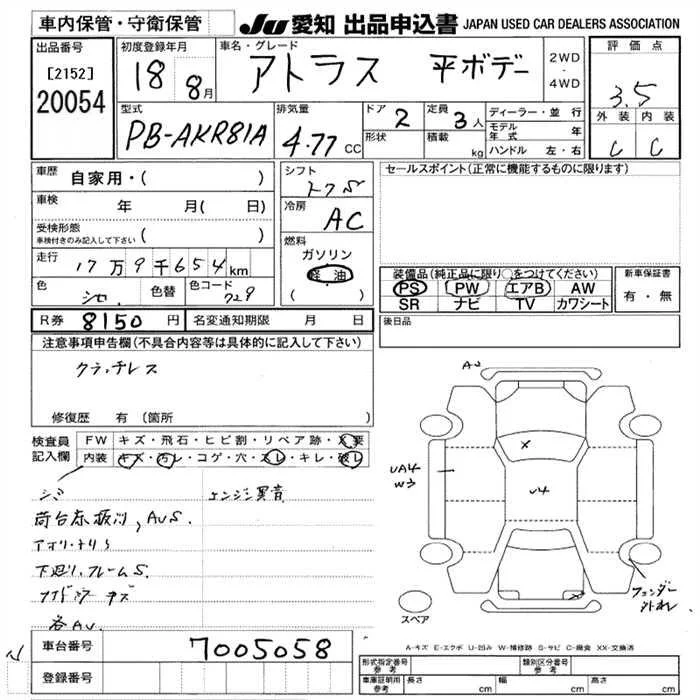 車内保管・守衛保管
JU 愛知 出品申込書 JAPAN USED CAR DEALERS ASSOCIATION
出品番号
[2152]
20054
初度登録年月
18 8月
車名・グレード
アトラス 平ボデー
2WD
・
4WD
評価点
3.5
外装 内装
C C
型式
PB-AKR81A
排気量
4.77 CC
ドア
2
形状
定員
3人
積載
kg
ディーラー・並行
モデル年式 年
ハンドル 左・右
車歴
自家用・( )
車検
年 月( 日)
受検形態
車検付きのみ記入して下さい ( )
走行
17万9千654km
色
シロ
色替
色コード
729
シフト
冷房
AC
燃料
ガソリン
軽油
( )
セールスポイント(正常に機能するものに限ります)
装備品(純正品に限り○をつけてください)
PS PW エアB AW
SR ナビ TV カワシート
新車保証書
有・無
R券 8150円
名変通知期限 月 日
後日品
注意事項申告欄(不具合内容等は具体的に記入して下さい)
クラッチレス
修復歴 有(箇所 )
検査員
記入欄
FW キズ・飛石・ヒビ割・リペア跡・X要
内装 キズ・汚レ・コゲ・穴・スレ・キレ・破レ
シミ
エンジン異音
荷台床板凹, AUS.
下廻り、フレームS.
各AU.
AU
UA4
W3
U4
X
X
フェンダー
外れ
スペア
A-キズ E-エクボ U-凹み W-補修跡 S-サビ C-腐食 XX-交換済
車台番号 7005058
登録番号
形式指定番号
参考
類別区分番号
参考
車庫証明用
参考
長さ cm 幅 cm 高さ cm